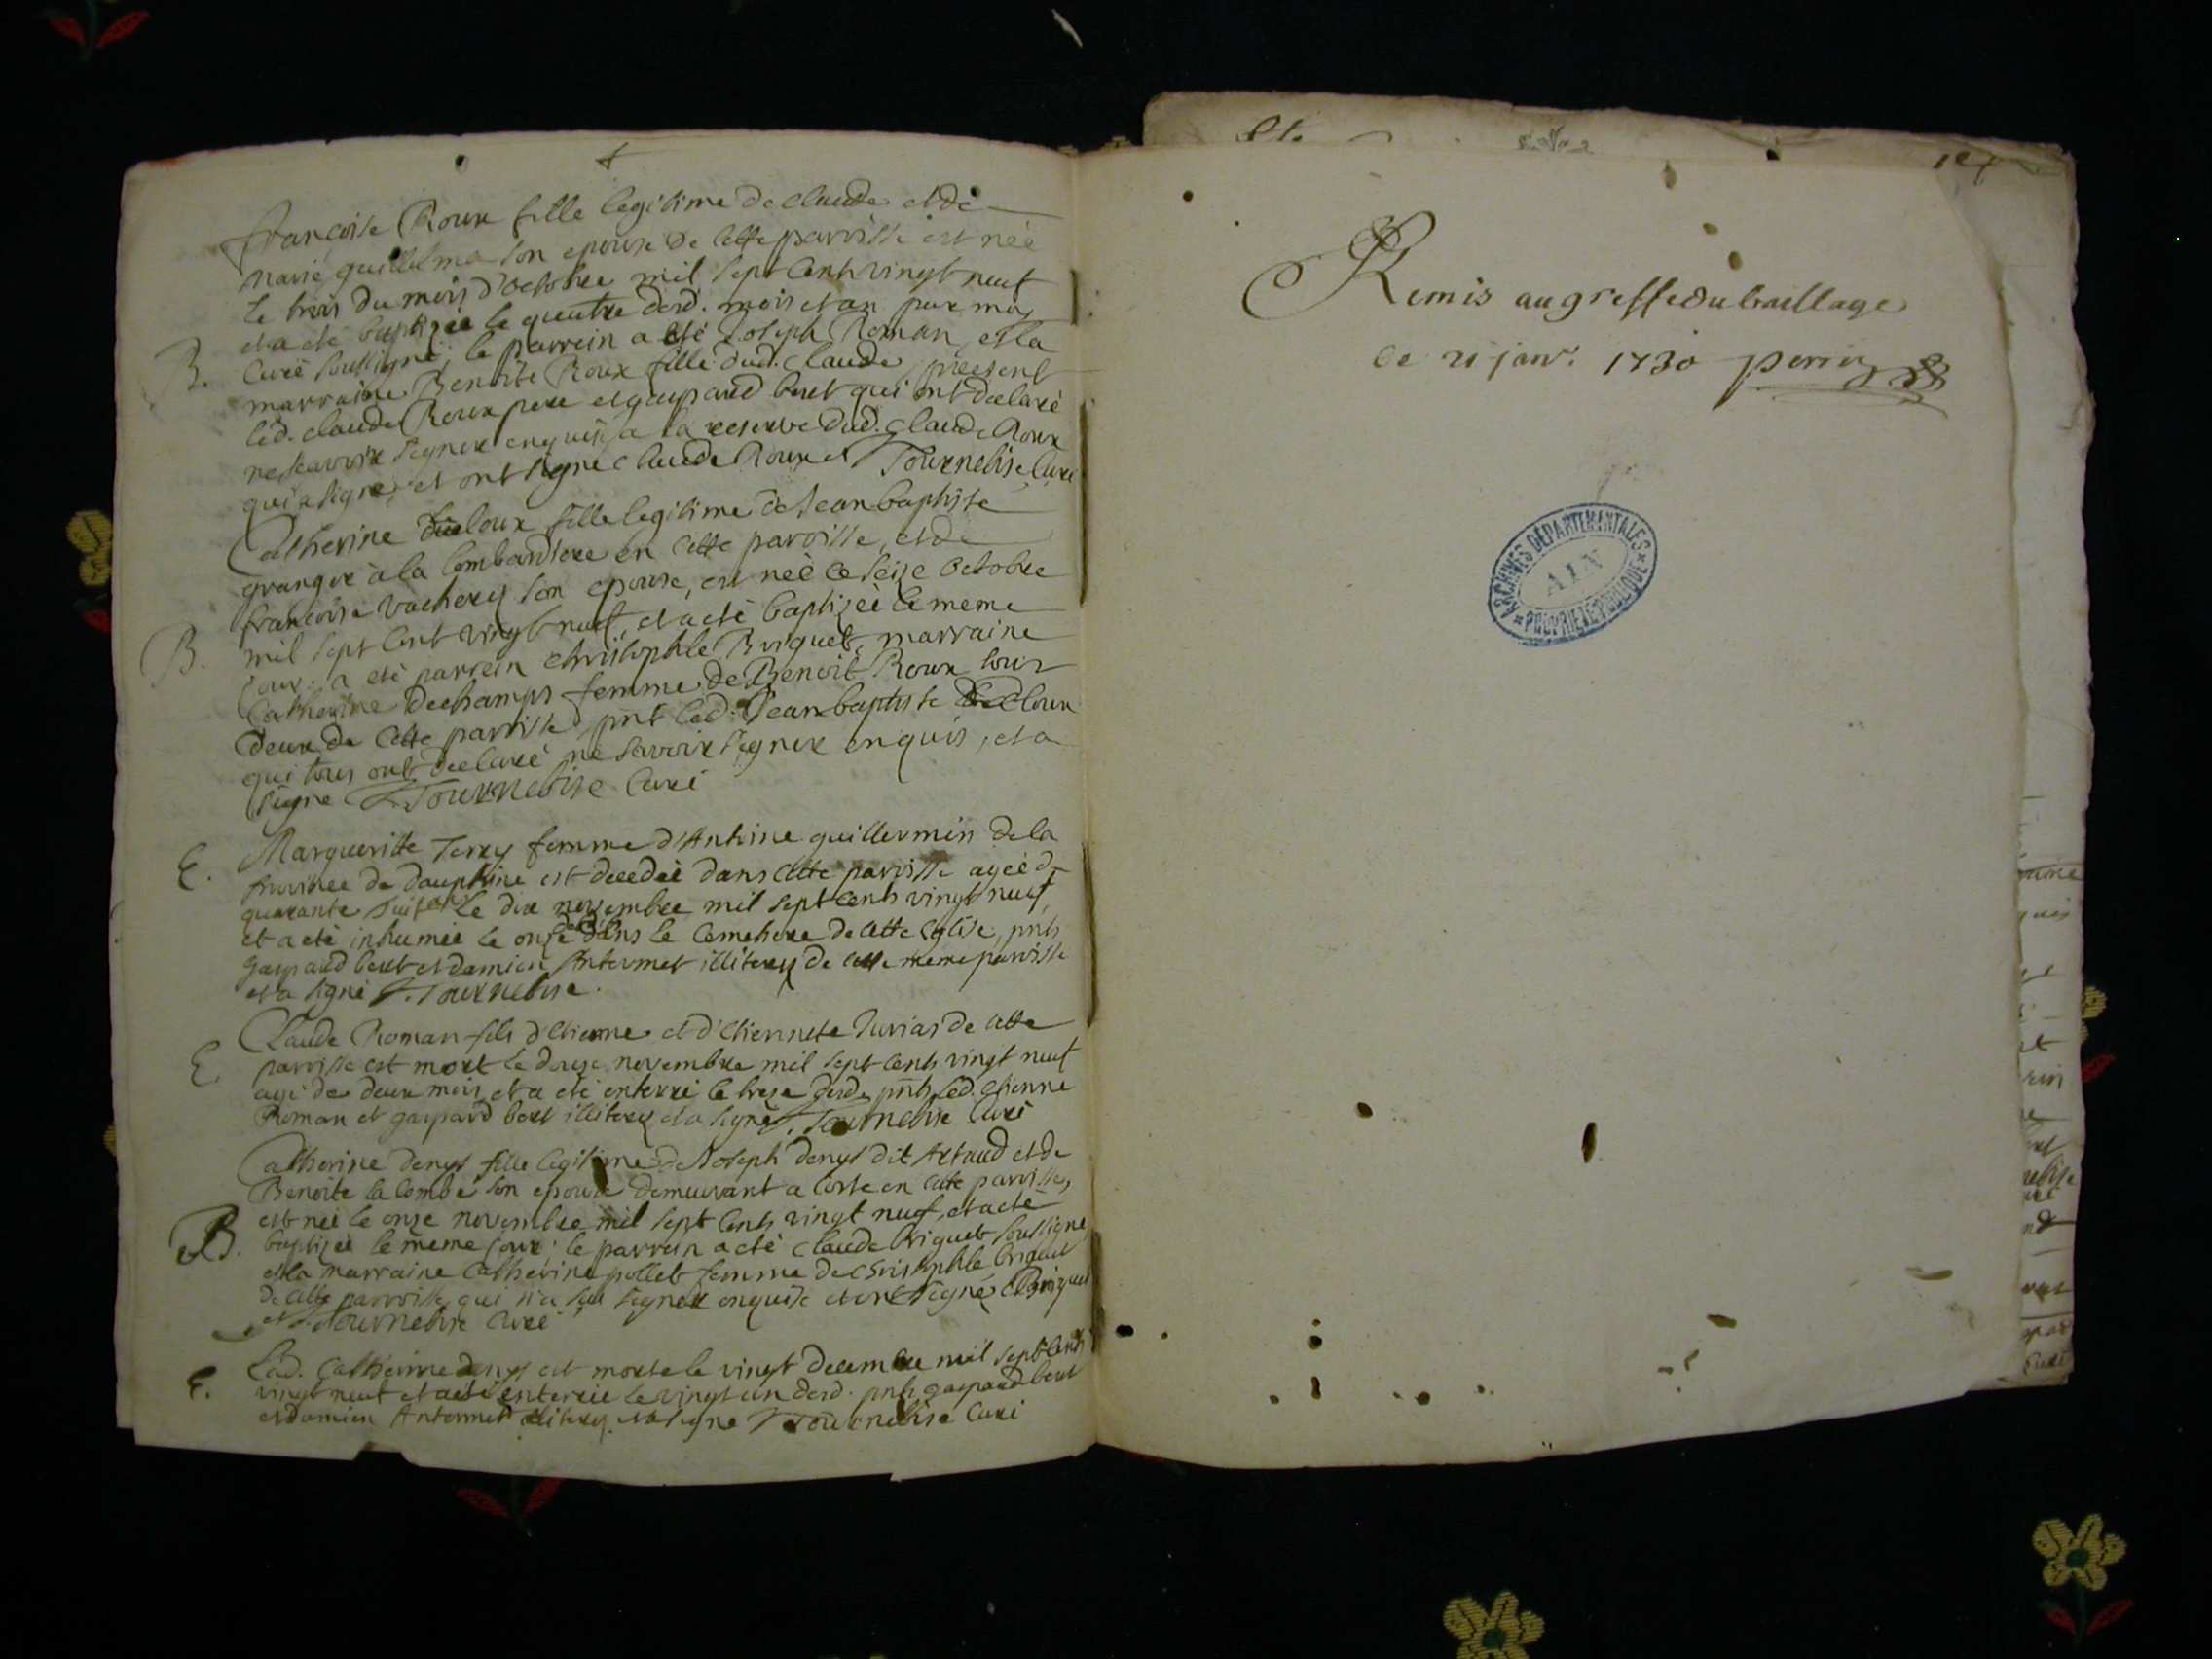 françoise Roux fille legitime de claude et de
marie guillelme son epouse de cette parroisse est née
le trois du mois d'octobre mil sept cents vingt neuf
et a été baptizée le quatre dud. mois et an par moy
B. curé soussigné; le parrein a été Joseph Roman, et la
marraine Benoite Roux fille dud. claude present
led. claude Roux pere et gaspard bert qui ont declaré
ne scavoir signer enquis, a la reserve dud. claude Roux
qui a signé, et ont signé claude Roux et Tournebise curé
Catherine ducloux fille legitime de Jean baptiste
granger à la Combardiere en cette paroisse, et de
francoise vachery son epouse, est née ce seize octobre
mil sept cent vingt neuf, et a été baptizée le meme
B. jour; a été parrein christophle Briquet, marraine
Catherine dechamps femme de Benoit Roux tous
deux de cette parroisse pnt led. Jean baptiste ducloux
qui tous ont declaré ne savoir signer enquis, et a
signé F. Tournebise curé
Marguerite Terry femme d'Antoine guillermin de la
E. province de dauphine est decedée dans cette parroisse agée de
quarante huit ans le dix novembre mil sept cents vingt neuf,
et a eté inhumée le onze dud. dans le cemetiere de cette eglise, pnts
gaspard bert et damien Antermet illiterez de cette meme parroisse
et a signé F. Tournebise.
Claude Roman fils d'etienne et d'etiennete Jurias de cette
E. parroisse est mort le douze novembre mil sept cents vingt neuf
agé de deux mois, et a eté enterré le treze dud. pnts led. etienne
Roman et gaspard bert illiterez et a signé F. Tournebise curé
Catherine denys fille legitime de Joseph denys dit Artaud et de
Benoite la Combe son epouse demeurant a Corte en cette parroisse,
est née le onze novembre mil sept cents vingt neuf, et a eté
B. baptizée le meme jour; le parrein a eté claude briquet soussigné
et la marraine Catherine pollet femme de christophle briquet
de cette parroisse, qui n'a sçu signer enquise et ont signé C Briquet
et F. Tournebise curé
E. Lad. Catherine denys est morte le vingt decembre mil sept cents
vingt neuf et a eté enterrée le vingt un dud. pnts gaspard bert
et damien Antermet illiterez et a signé F Tournebise curé
Remis au greffe du bailliage
ce 21 janv. 1730 perrin
ARCHIVES DÉPARTEMENTALES
AIN
PROPRIÉTÉ PUBLIQUE